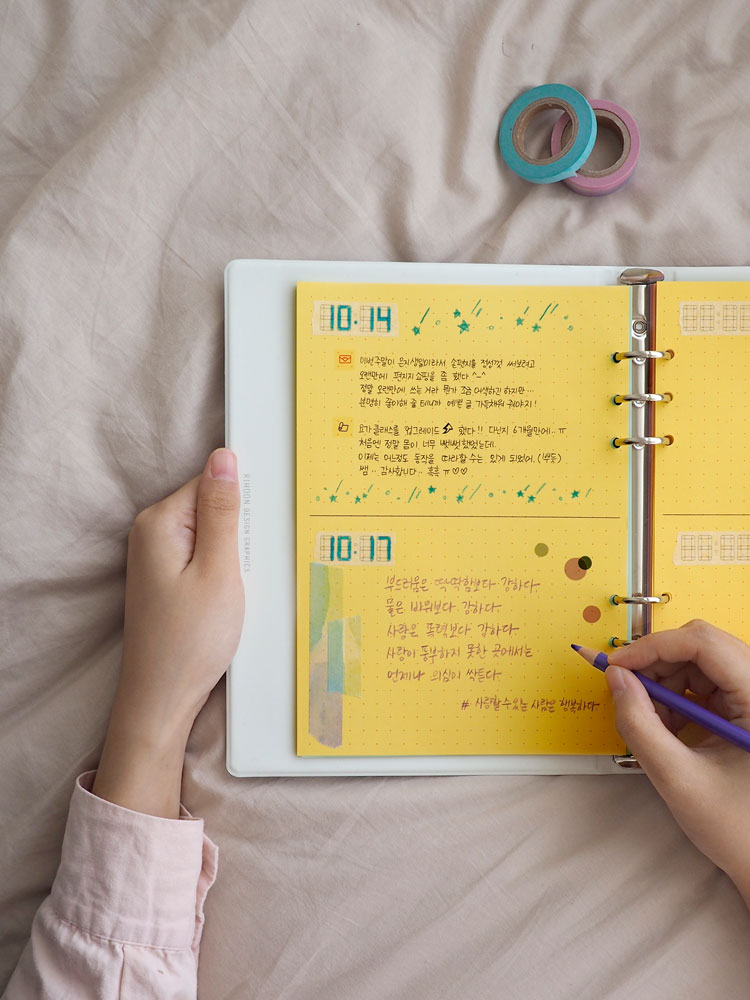 10.14
이번주말이 은지생일이라서 손편지를 정성껏 써보려고
오랜만에 편지지쇼핑을 좀 했다 ^-^
정말 오랜만에 쓰는거라 뭔가 조금 어색하긴 하지만...
분명히 좋아해 줄 테니까 예쁜 글 가득채워 줘야지!
요가클래스를 업그레이드 했다!! 다닌지 6개월만에..ㅠ
처음엔 정말 몸이 너무 뻣뻣했었는데.
이제는 어느정도 동작을 따라할 수는 있게 되었어. (뿌듯)
쌤.. 감사합니다.. 흑흑 ㅠ♡♡
10.17
부드러움은 딱딱함보다 강하다
물은 바위보다 강하다
사랑은 폭력보다 강하다
사랑이 풍부하지 못한 곳에서는
언제나 의심이 싹튼다
# 사랑할 수 있는 사람은 행복하다
RIHOON DESIGN GRAPHICS